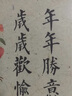 年年勝意
歲歲歡愉